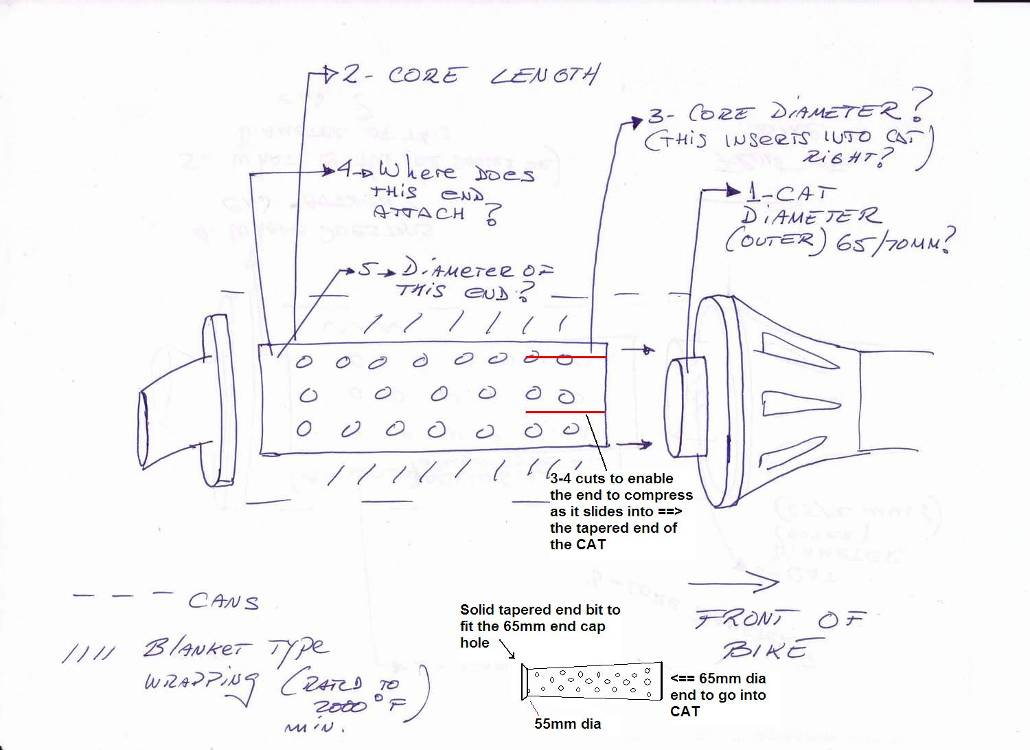 2- CORE LENGTH
3- CORE DIAMETER?
(THIS INSERTS INTO CAT
RIGHT?)
4- Where DOES
THIS END
ATTACH?
1-CAT
DIAMETER
(OUTER) 65/70MM?
5- DIAMETER OF
THIS END?
3-4 cuts to enable
the end to compress
as it slides into ==>
the tapered end of
the CAT
--- CANS
//// Blanket Type
WRAPPING (RATED TO
2000°F
MIN.)
Solid tapered end bit to
fit the 65mm end cap
hole
<== 65mm dia
end to go into
CAT
55mm dia
FRONT OF
BIKE